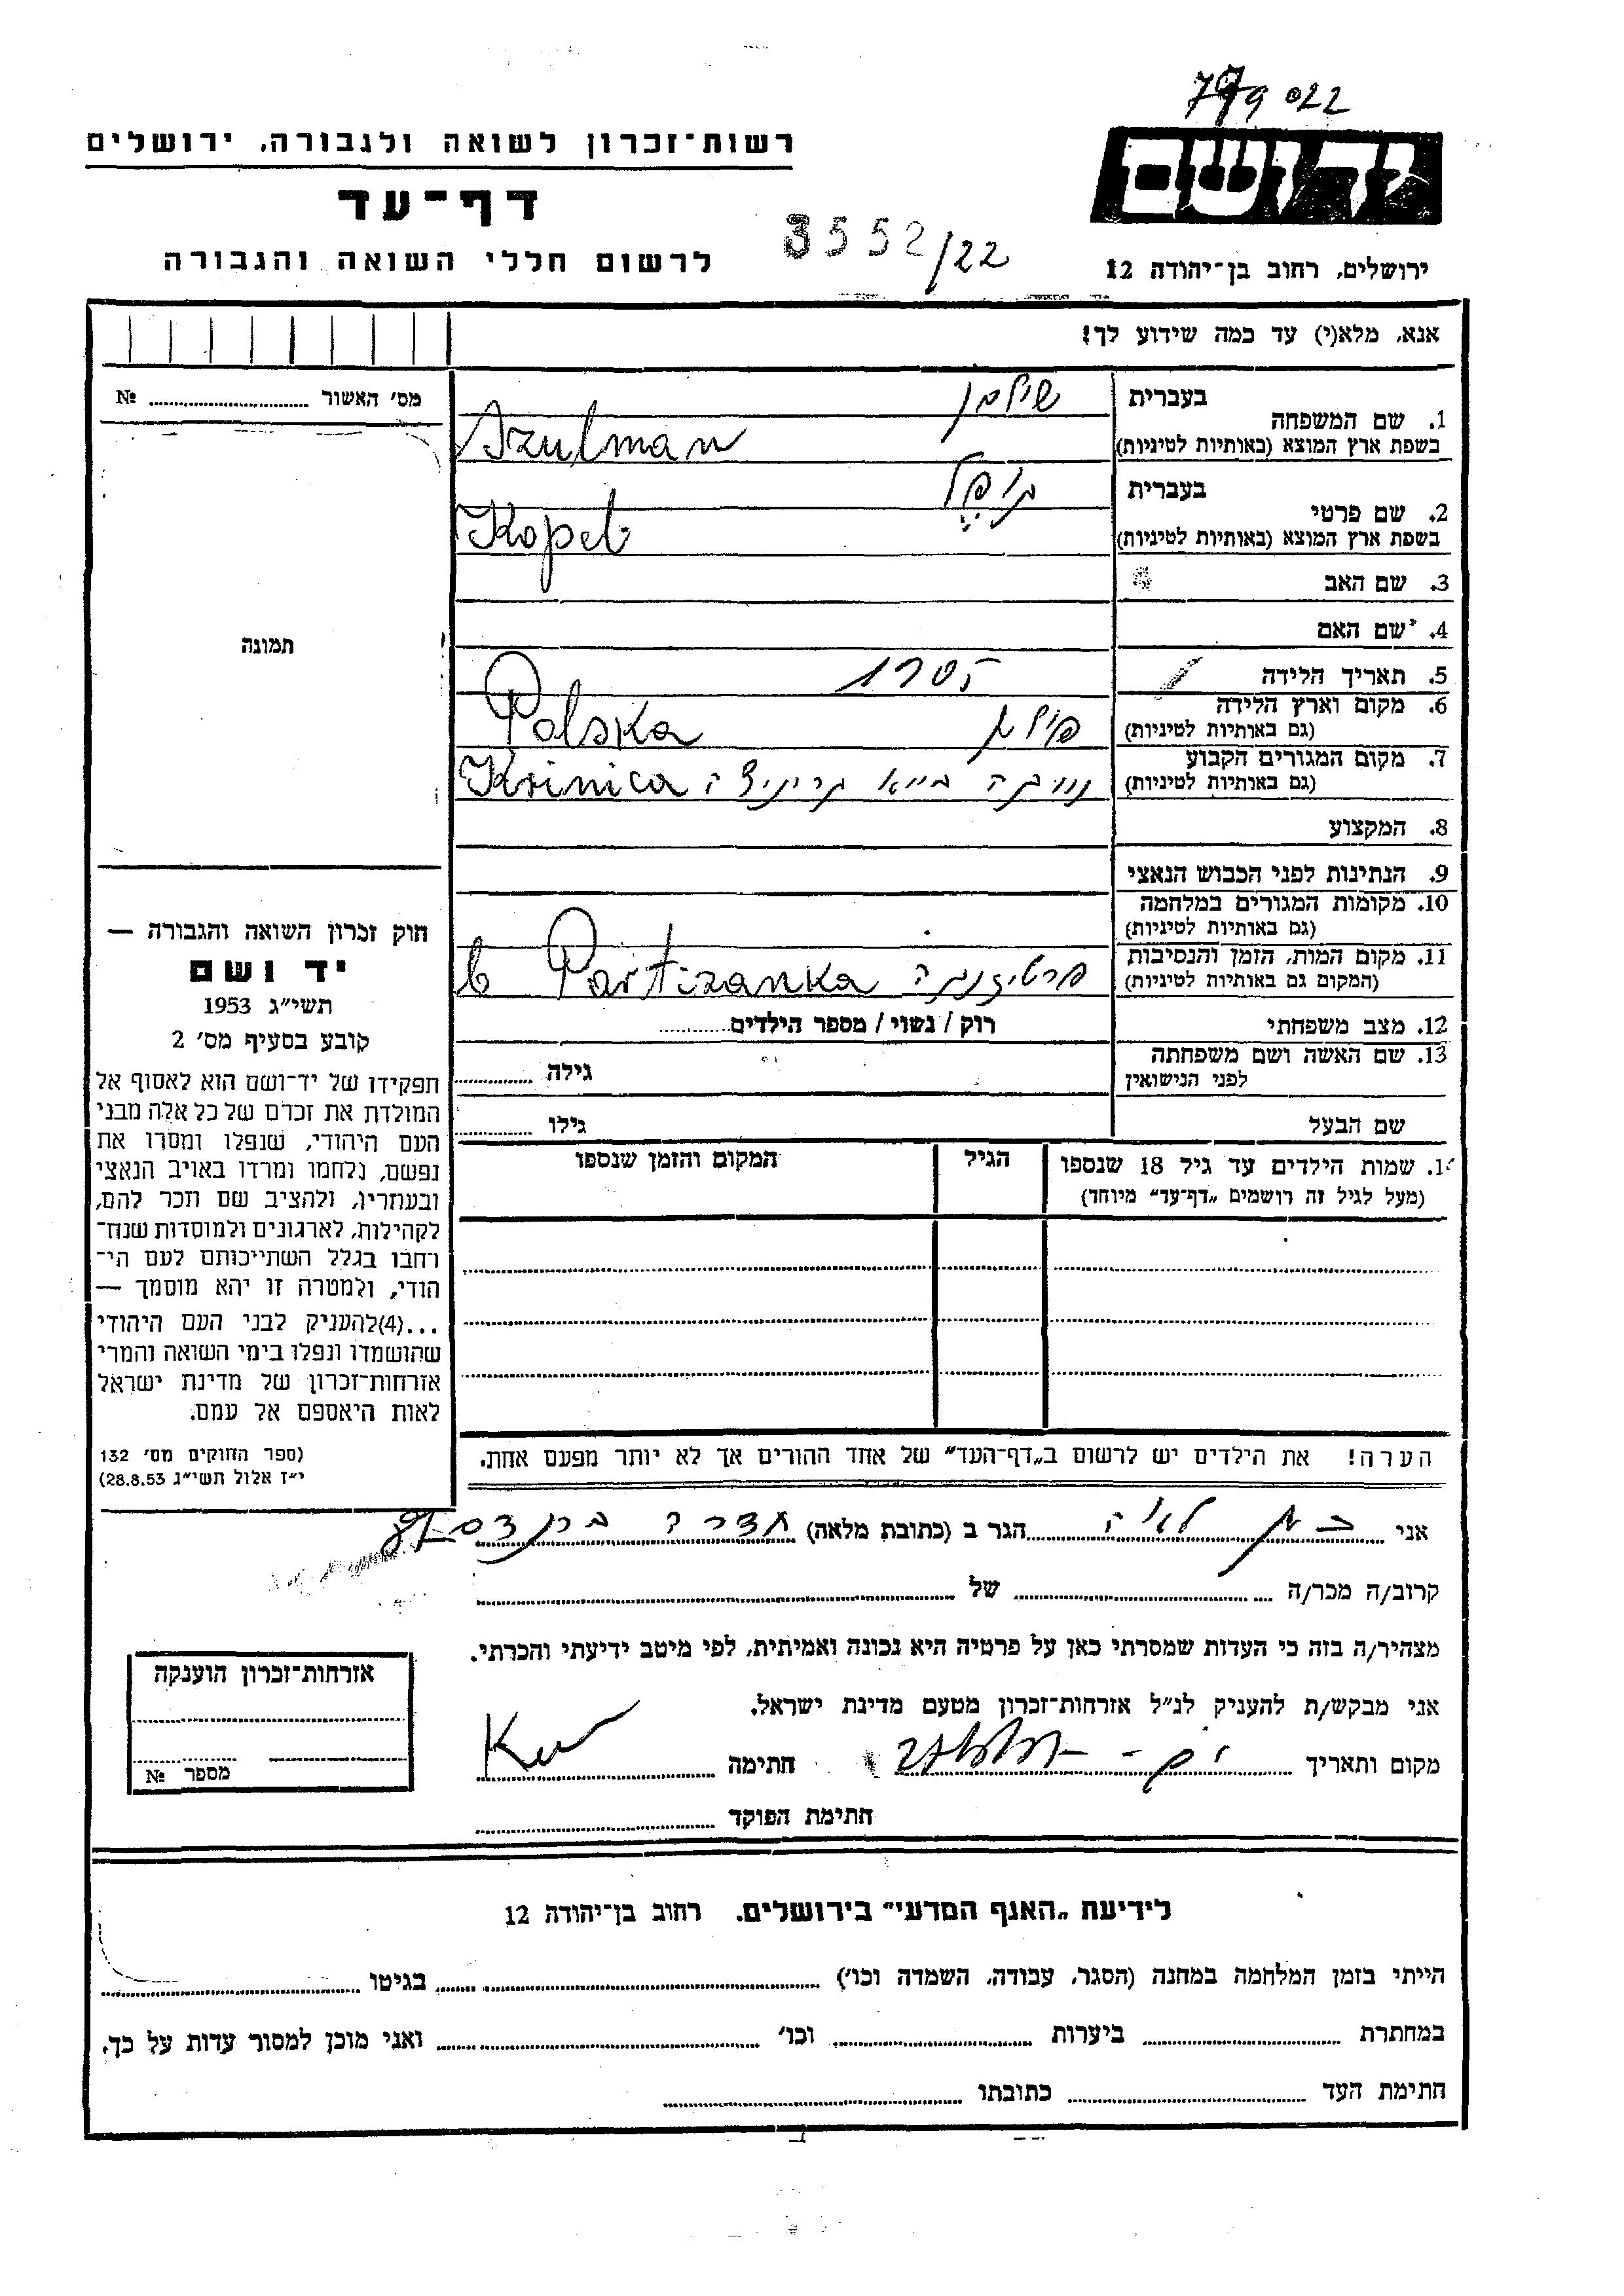 779022
רשות־זכרון לשואה ולגבורה, ירושלים
דף־עד
לרשום חללי השואה והגבורה
3552/22
יד ושם
ירושלים, רחוב בן־יהודה 12
אנא, מלא(י) עד כמה שידוע לך!
מס׳ האשור № 
תמונה
1. שם המשפחה
בעברית שולמן
בשפת ארץ המוצא (באותיות לטיניות) Szulman
2. שם פרטי
בעברית קופל
בשפת ארץ המוצא (באותיות לטיניות) Kopel
3. שם האב
4. שם האם
5. תאריך הלידה 1905
6. מקום וארץ הלידה
(גם באותיות לטיניות) פולין Polska
7. מקום המגורים הקבוע
(גם באותיות לטיניות) קריניצה Krinica
8. המקצוע
9. הנתינות לפני הכבוש הנאצי
10. מקומות המגורים במלחמה
(גם באותיות לטיניות)
11. מקום המות, הזמן והנסיבות
(המקום גם באותיות לטיניות) פרטיזנקה Partizanka
12. מצב משפחתי רוק / נשוי / מספר הילדים
13. שם האשה ושם משפחתה
לפני הנישואין גילה
שם הבעל גילו
14. שמות הילדים עד גיל 18 שנספו
(מעל לגיל זה רושמים „דף־עד״ מיוחד)
הגיל
המקום והזמן שנספו
הערה! את הילדים יש לרשום ב„דף־העד״ של אחד ההורים אך לא יותר מפעם אחת.
חוק זכרון השואה והגבורה —
יד ושם
תשי״ג 1953
קובע בסעיף מס׳ 2
תפקידו של יד־ושם הוא לאסוף אל
המולדת את זכרם של כל אלה מבני
העם היהודי, שנפלו ומסרו את
נפשם, נלחמו ומרדו באויב הנאצי
ובעוזריו, ולהציב שם וזכר להם,
לקהילות, לארגונים ולמוסדות שנח־
רבו בגלל השתייכותם לעם הי־
הודי, ולמטרה זו יהא מוסמך —
...(4)להעניק לבני העם היהודי
שהושמדו ונפלו בימי השואה והמרי
אזרחות־זכרון של מדינת ישראל
לאות היאספם אל עמם.
(ספר החוקים מס׳ 132
י״ז אלול תשי״ג 28.8.53)
אני לאה הגר ב (כתובת מלאה) חדרה
קרוב/ה מכר/ה של
מצהיר/ה בזה כי העדות שמסרתי כאן על פרטיה היא נכונה ואמיתית, לפי מיטב ידיעתי והכרתי.
אני מבקש/ת להעניק לנ״ל אזרחות־זכרון מטעם מדינת ישראל.
מקום ותאריך חתימה
חתימת הפוקד
אזרחות־זכרון הוענקה
מספר №
לידיעת „האגף המדעי״ בירושלים. רחוב בן־יהודה 12
הייתי בזמן המלחמה במחנה (הסגר, עבודה, השמדה וכו׳) בגיטו
במחתרת ביערות וכו׳ ואני מוכן למסור עדות על כך.
חתימת העד כתובתו